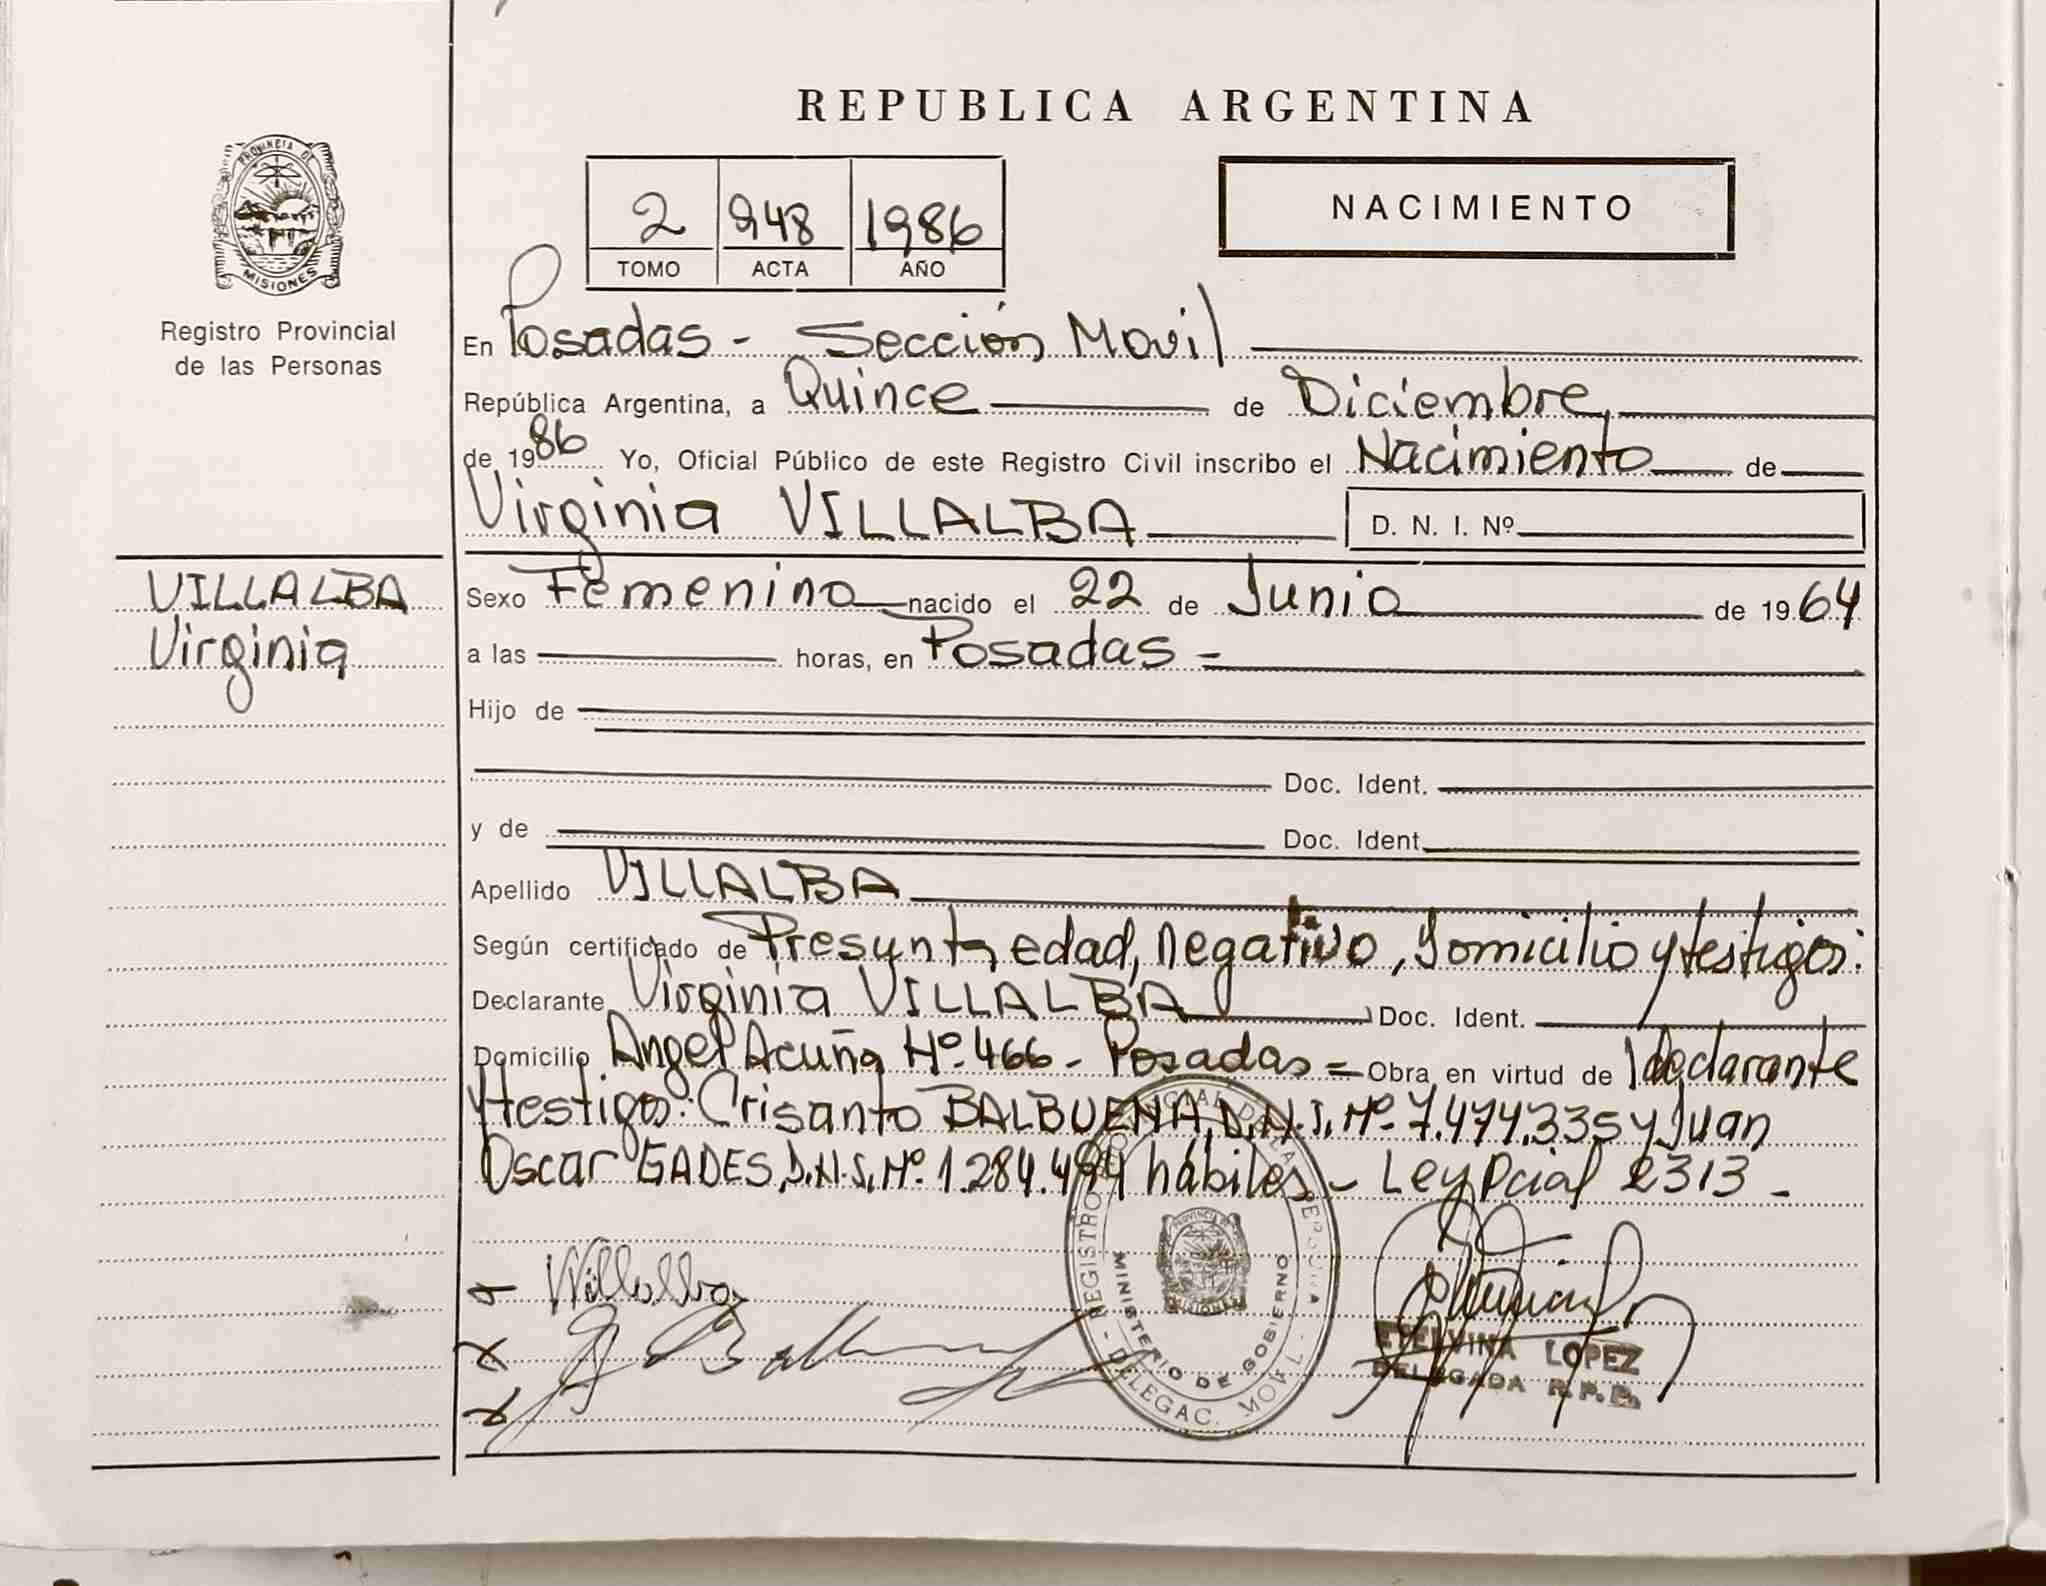 REPUBLICA ARGENTINA
PROVINCIA DE
MISIONES
Registro Provincial
de las Personas
2 948 1986
TOMO ACTA AÑO
NACIMIENTO
En Posadas - Sección Movil
República Argentina, a Quince de Diciembre,
de 1986 Yo, Oficial Público de este Registro Civil inscribo el Nacimiento de
Virginia VILLALBA D. N. I. Nº
VILLALBA
Virginia
Sexo Femenino nacido el 22 de Junio de 1964
a las horas, en Posadas -
Hijo de
Doc. Ident.
y de Doc. Ident.
Apellido VILLALBA
Según certificado de Presunta edad, negativo, domicilio y testigos:
Declarante Virginia VILLALBA Doc. Ident.
Domicilio Angel Acuña Nº 466 - Posadas = Obra en virtud de declarante
y testigos: Crisanto BALBUENA, D.N.I. Nº 7.474.335 y Juan
Oscar GADES, D.N.I. Nº 1.284.494 hábiles - Ley Pcial 2313 -
REGISTRO PROVINCIAL DE LAS PERSONAS
PROVINCIA DE
MISIONES
MINISTERIO DE GOBIERNO
- DELEGAC. MOVIL -
Villalba
ETELVINA LOPEZ
DELEGADA R. P. P.